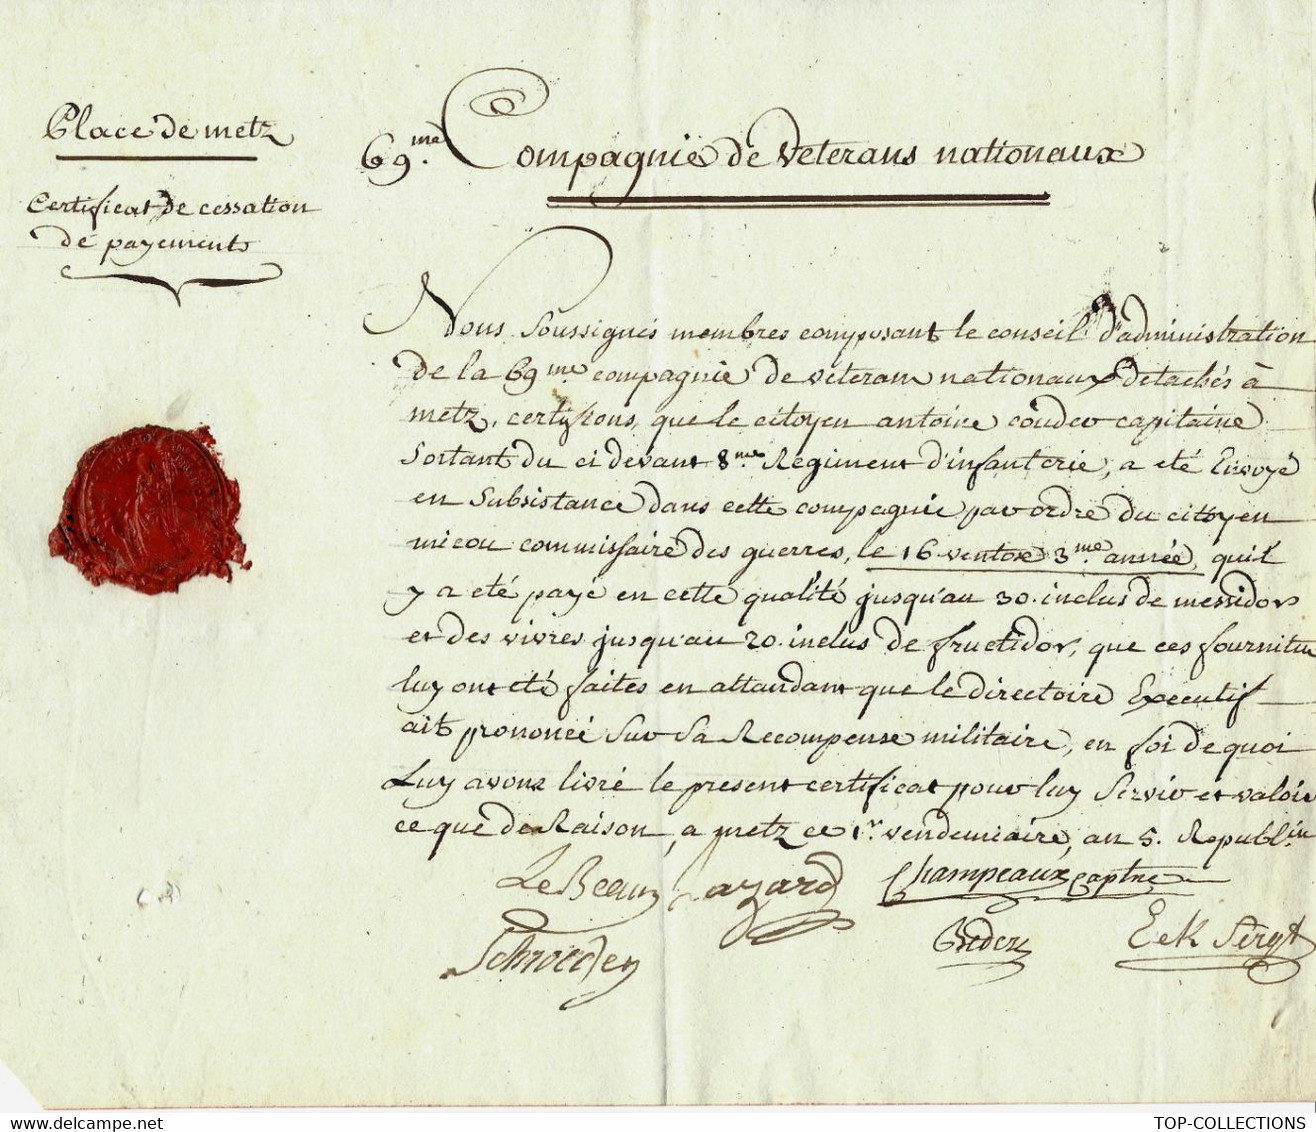 Place de metz
Certificat de cessation
de payements
69.me Compagnie de Veterans nationaux
Nous Soussignés membres composant le conseil d'administration
De la 69me. compagnie de veterans nationaux détachés à
metz, certifions, que le citoyen antoine couder capitaine
Sortant du ci devant 8me. Regiment d'infanterie, a eté Envoyé
en Subsistance dans cette compagnie par ordre du citoyen
micou commissaire des guerres, le 16 ventose 3me. année, qu'il
y a eté payé en cette qualité jusqu'au 30. inclus de messidor
et des vivres jusqu'au 20. inclus de fructidor, que ces fournitu
luy ont eté faites en attandant que le directoire Executif
ait prononcé Sur Sa Recompense militaire, en foi de quoi
Luy avons livré le present certificat pour luy Servir et valoir
ce que de Raison, a metz ce 1r. vendemiaire, an 5. Republ.in
LeBeau Lazard Champeaux captne
Schroeder Beder Eck Sergt
TOP-COLLECTIONS